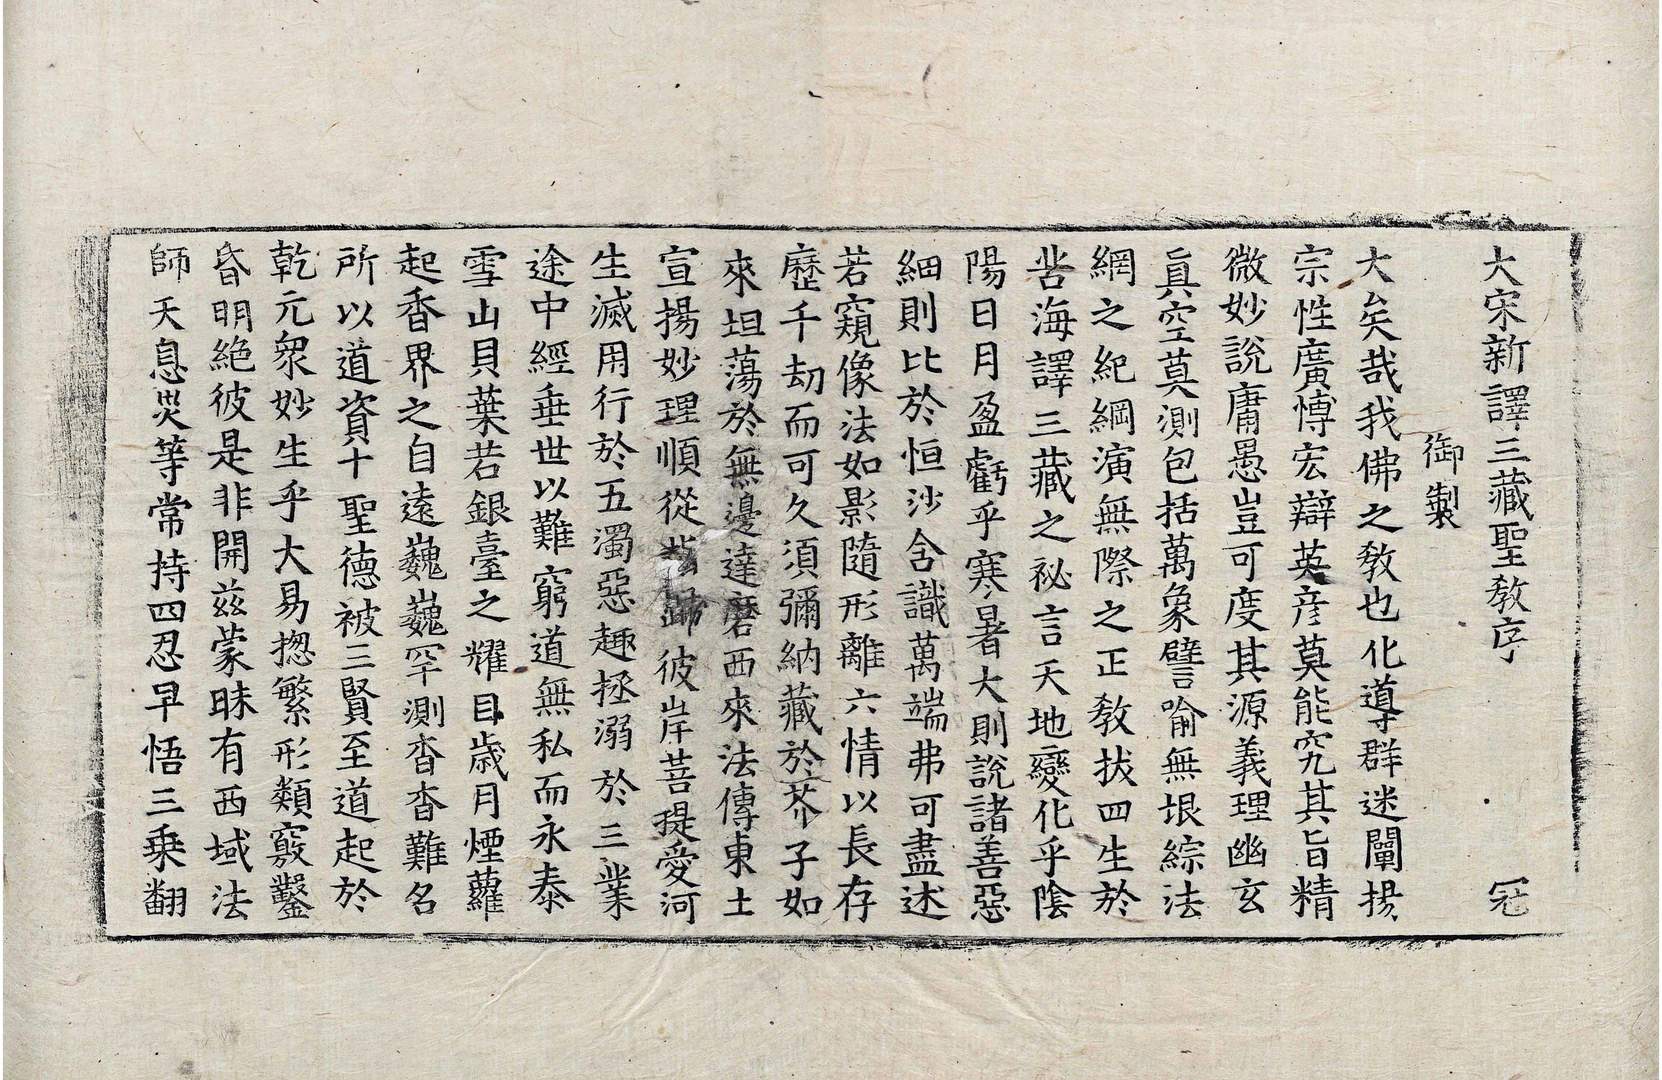 大宋新譯三藏聖教序 冠
御製
大矣哉我佛之教也化導群迷闡揚
宗性廣愽宏辯英彦莫能究其旨精
微妙說庸愚豈可度其源義理幽玄
真空莫測包括萬象譬喻無垠綜法
網之紀綱演無際之正教拔四生於
苦海譯三藏之祕言天地變化乎陰
陽日月盈虧乎寒暑大則說諸善惡
細則比於恒沙含識萬端弗可盡述
若窺像法如影隨形離六情以長存
歷千劫而可久須彌納藏於芥子如
來坦蕩於無邊達磨西來法傳東土
宣揚妙理順從指歸彼岸菩提愛河
生滅用行於五濁惡趣拯溺於三業
途中經垂世以難窮道無私而永泰
雪山貝葉若銀臺之耀目歲月煙蘿
起香界之自遠巍巍罕測杳杳難名
所以道資十聖德被三賢至道起於
乾元衆妙生乎大易揔繁形類竅鑿
昏明絕彼是非開茲蒙昧有西域法
師天息災等常持四忍早悟三乘翻